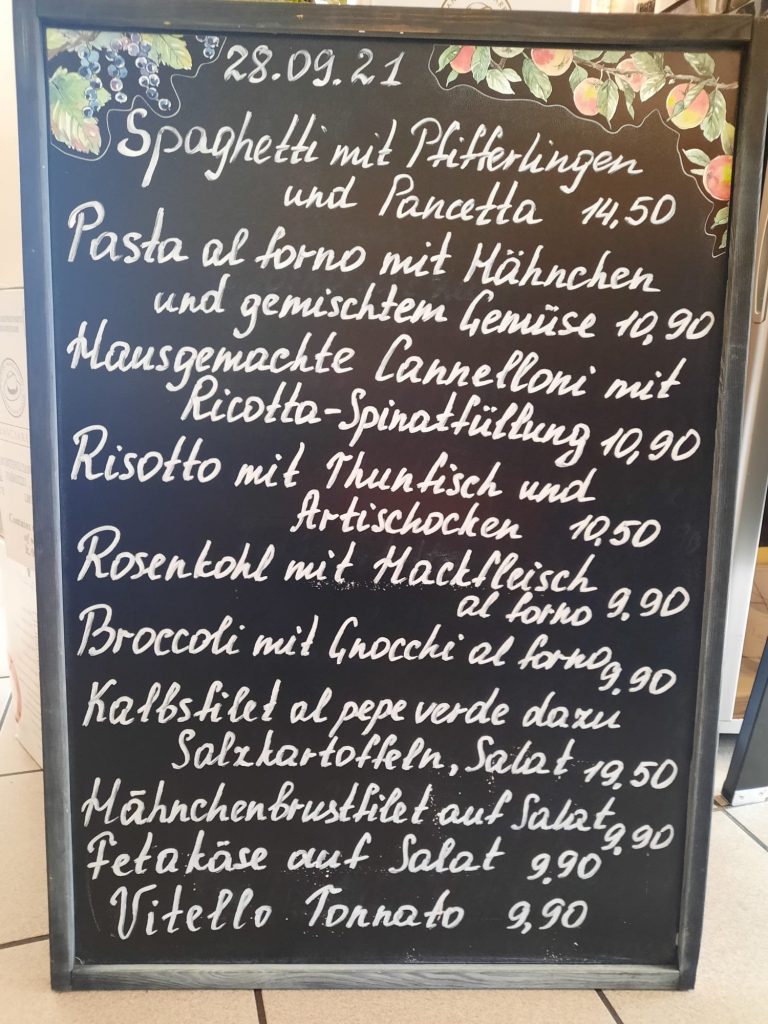 28.09.21
Spaghetti mit Pfifferlingen
und Pancetta 14,50
Pasta al forno mit Hähnchen
und gemischtem Gemüse 10,90
Hausgemachte Cannelloni mit
Ricotta-Spinatfüllung 10,90
Risotto mit Thunfisch und
Artischocken 10,50
Rosenkohl mit Hackfleisch
al forno 9.90
Broccoli mit Gnocchi al forno
9.90
Kalbsfilet al pepe verde dazu
Salzkartoffeln, Salat 19.50
Hähnchenbrustfilet auf Salat
9.90
Fetakäse auf Salat 9.90
Vitello Tonnato 9,90